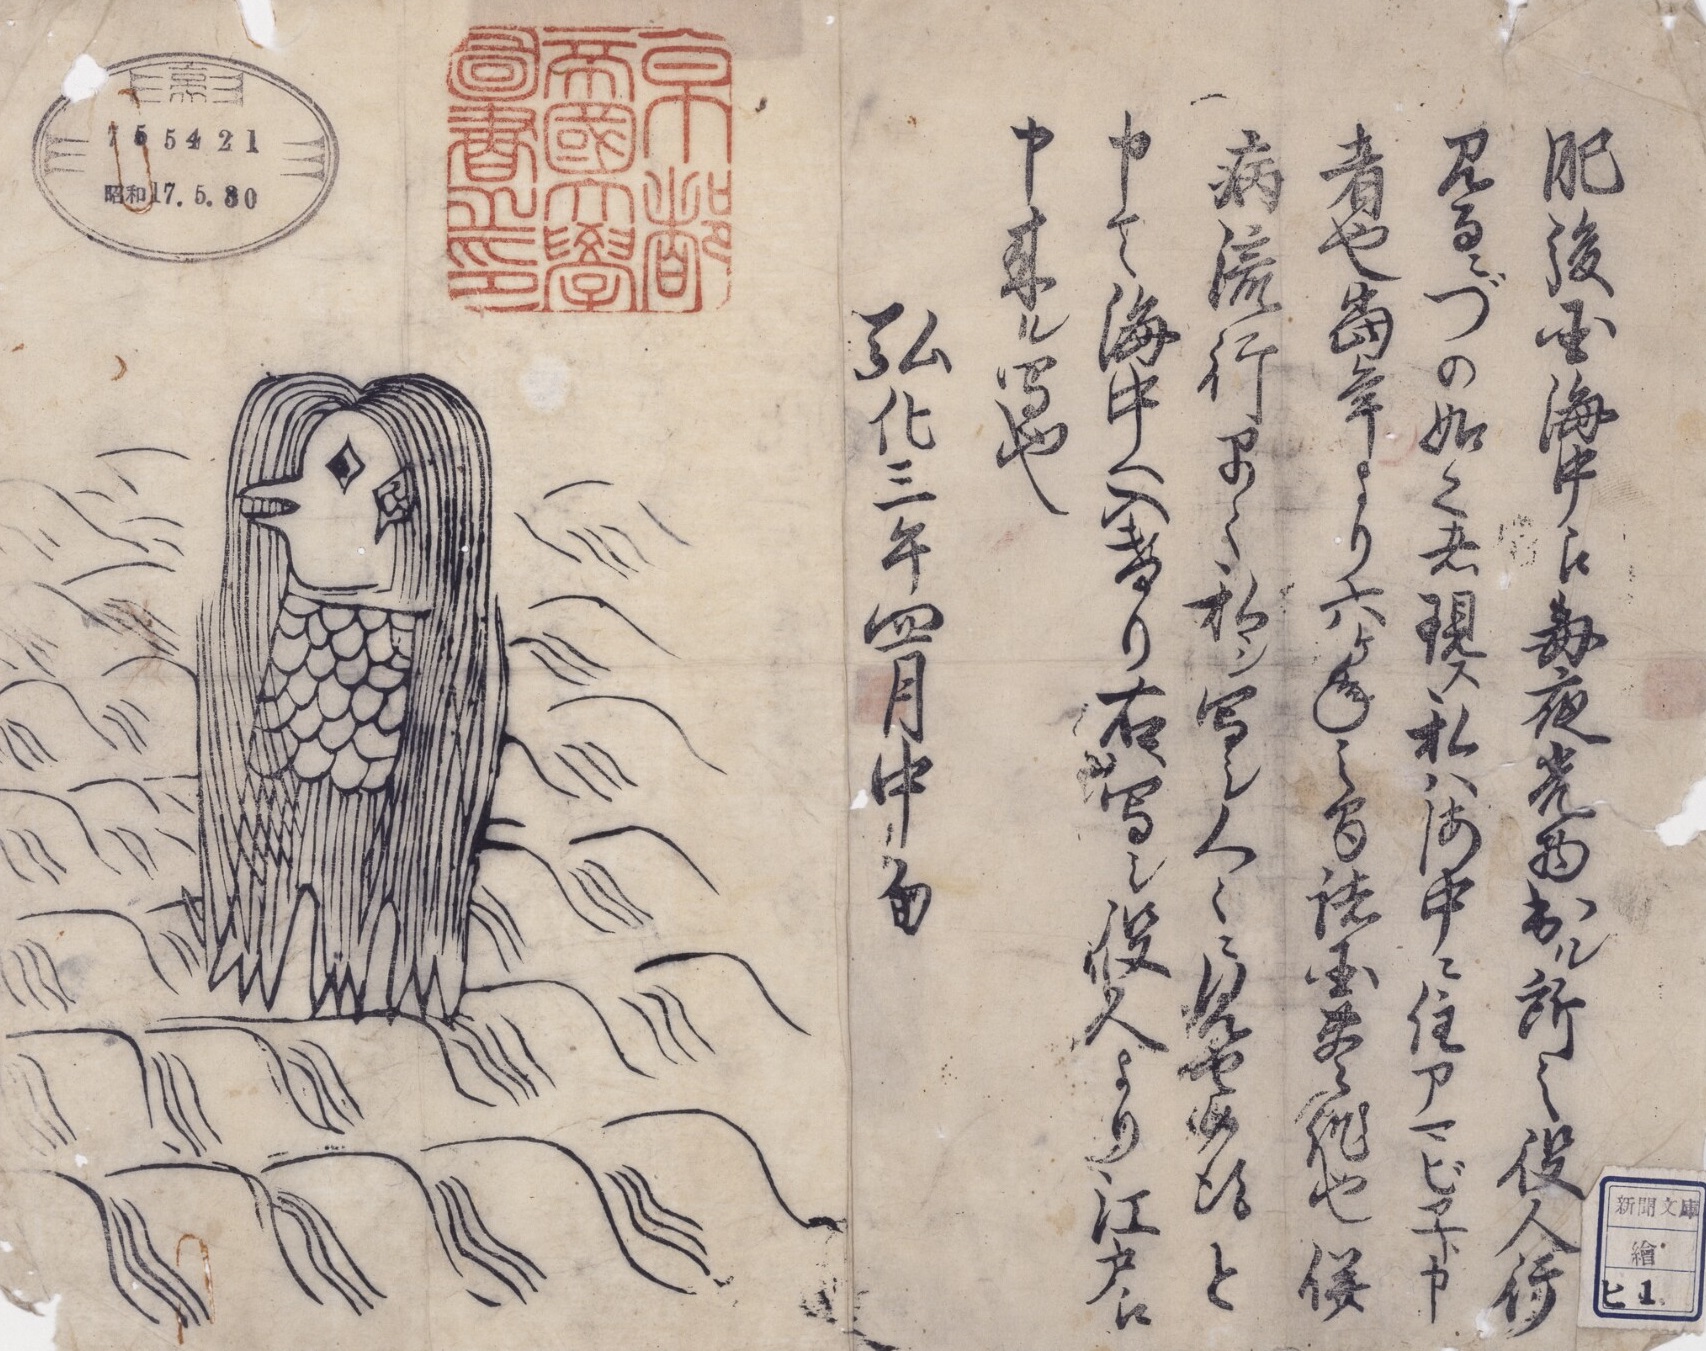 肥後国海中江毎夜光物出ル所之役人行
見るニづの如く者現ス私ハ海中ニ住アマビヱト申
者也當年より六ヶ年之間諸国豊作也併
病流行早々私ヲ写シ人々ニ見セ候得と
申て海中へ入けり右写シ役人より江戸江
申来ル写也
弘化三年四月中旬
京都
帝國大學
圖書之印
755421
昭和17.5.30
新聞文庫
繪
ヒ1